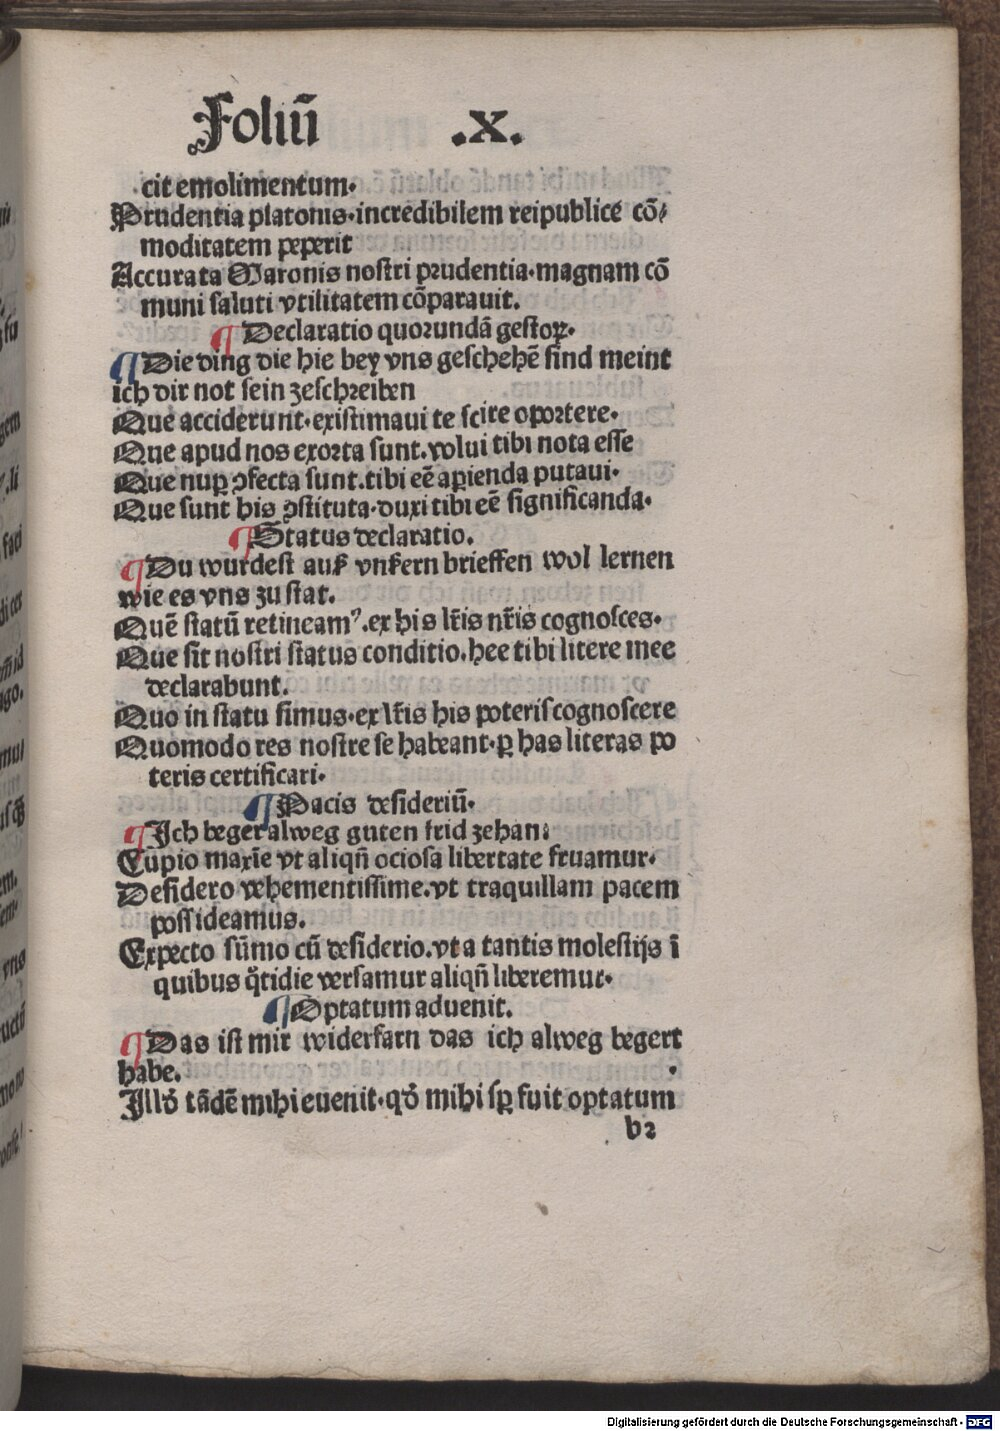 Foliū .X.
cit emolimentum.
Prudentia platonis.incredibilem reipublice cō⸗
moditatem peperit
Accurata Maronis nostri prudentia.magnam cō
muni saluti vtilitatem cōparauit.
¶ Declaratio quorundā gestoꝝ.
¶ Die ding die hie bey vns geschehē sind meint
ich dir not sein zeschreiben
Que acciderunt.existimaui te scire oportere.
Que apud nos exorta sunt.volui tibi nota esse
Que nuꝑ ꝯfecta sunt.tibi eē aꝑienda putaui.
Que sunt his ꝯstituta.duxi tibi eē significanda.
¶ Status declaratio.
¶ Du wurdest auß vnsern brieffen wol lernen
wie es vns zu stat.
Quē statū retineamꝰ.ex his lr̄is nr̄is cognosces.
Que sit nostri status conditio.hee tibi litere mee
declarabunt.
Quo in statu simus.ex lr̄is his poteris cognoscere
Quomodo res nostre se habeant.ꝑ has literas po
teris certificari.
¶ Pacis desideriū.
¶ Ich beger alweg guten frid zehan.
Cupio maxīe vt aliqn̄ ociosa libertate fruamur.
Desidero vehementissime.vt traquillam pacem
possideamus.
Expecto sūmo cū desiderio.vt a tantis molestijs ī
quibus q̊tidie versamur aliqn̄ liberemur.
¶ Optatum aduenit.
¶ Das ist mir widerfarn das ich alweg begert
habe.
Illd̓ tādē mihi euenit.qd̓ mihi sꝑ fuit optatum
b2
Digitalisierung gefördert durch die Deutsche Forschungsgemeinschaft - DFG